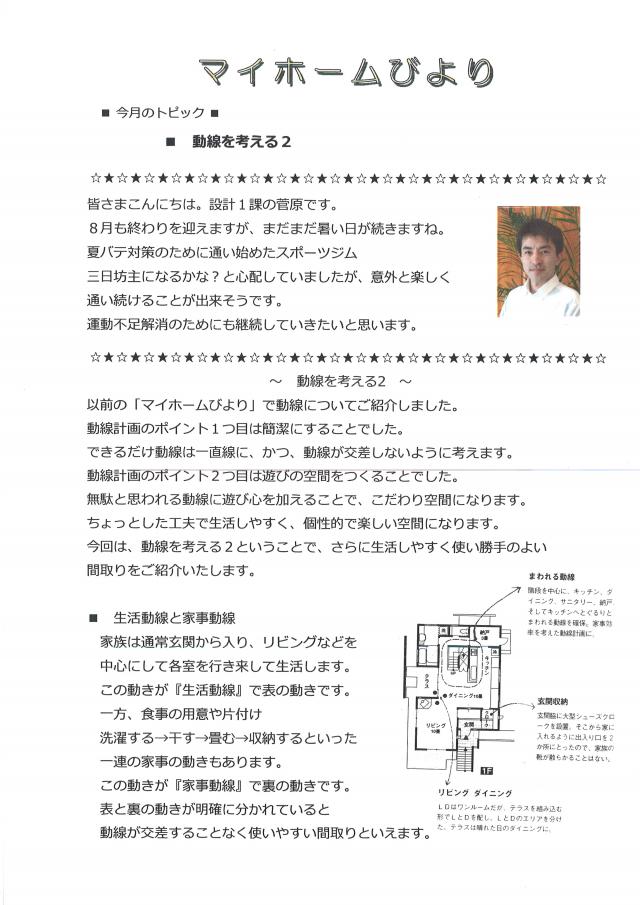 マイホームびより
■ 今月のトピック ■
■ 動線を考える２
☆★☆★☆★☆★☆★☆★☆★☆★☆★☆★☆★☆★☆★☆★☆★☆★☆★☆★☆★☆
皆さまこんにちは。設計１課の菅原です。
８月も終わりを迎えますが、まだまだ暑い日が続きますね。
夏バテ対策のために通い始めたスポーツジム
三日坊主になるかな？と心配していましたが、意外と楽しく
通い続けることが出来そうです。
運動不足解消のためにも継続していきたいと思います。
☆★☆★☆★☆★☆★☆★☆★☆★☆★☆★☆★☆★☆★☆★☆★☆★☆★☆★☆★☆
～ 動線を考える2 ～
以前の「マイホームびより」で動線についてご紹介しました。
動線計画のポイント１つ目は簡潔にすることでした。
できるだけ動線は一直線に、かつ、動線が交差しないように考えます。
動線計画のポイント２つ目は遊びの空間をつくることでした。
無駄と思われる動線に遊び心を加えることで、こだわり空間になります。
ちょっとした工夫で生活しやすく、個性的で楽しい空間になります。
今回は、動線を考える２ということで、さらに生活しやすく使い勝手のよい
間取りをご紹介いたします。
■ 生活動線と家事動線
家族は通常玄関から入り、リビングなどを
中心にして各室を行き来して生活します。
この動きが『生活動線』で表の動きです。
一方、食事の用意や片付け
洗濯する→干す→畳む→収納するといった
一連の家事の動きもあります。
この動きが『家事動線』で裏の動きです。
表と裏の動きが明確に分かれていると
動線が交差することなく使いやすい間取りといえます。
まわれる動線
階段を中心に、キッチン、ダ
イニング、サニタリー、納戸、
そしてキッチンへとぐるりと
まわれる動線を確保。家事効
率を考えた動線計画に。
納戸
3畳
キッチン
テラス
ダイニング10畳
リビング
10畳
玄関
クローク
1F
玄関収納
玄関脇に大型シューズクロ
ークを設置。そこから家に
入れるように出入り口を２
か所にとったので、家族の
靴が散らかることはない。
リビング ダイニング
ＬＤはワンルームだが、テラスを組み込む
形でＬとＤを配し、ＬとＤのエリアを分け
た。テラスは晴れた日のダイニングに。